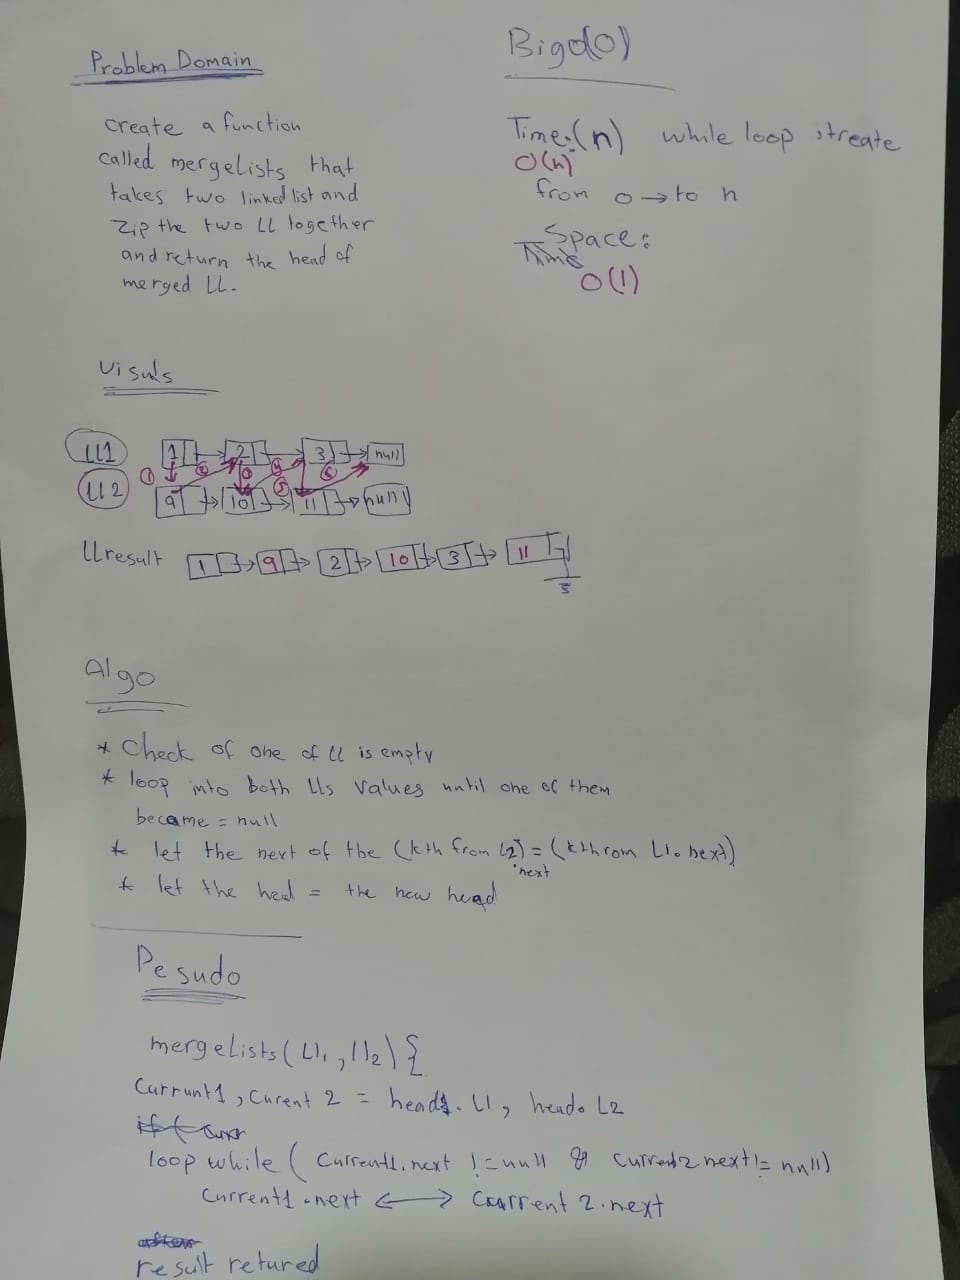 Problem Domain
create a function
called mergeLists that
takes two linked list and
zip the two LL together
and return the head of
merged LL.
BigO(O)
Time:(n) while loop itreate
O(n)
from 0 → to n
Space:
Time
O(1)
Visuls
LL1 1 2 3 null
① ② ③ ④ ⑤ ⑥
LL2 9 10 11 null
LLresult 1 → 9 → 2 → 10 → 3 → 11
Algo
* Check of one of LL is empty
* loop into both LLs values until one of them
became = null
* let the next of the (kth from L2) = (kthrom L1.next)
.next
* let the hed = the new head
Pesudo
mergeLists(LL1, LL2) {
Currunt1, Curent 2 = head. L1, head. L2
if ( curr
loop while ( Current1.next != null & current2.next != null)
Current1.next <-> Current 2.next
after
result retured